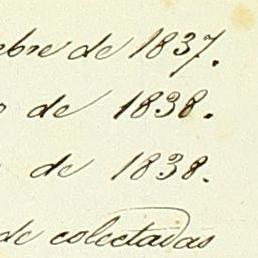 ebre de 1837.
o de 1838.
de 1838.
de colectadas